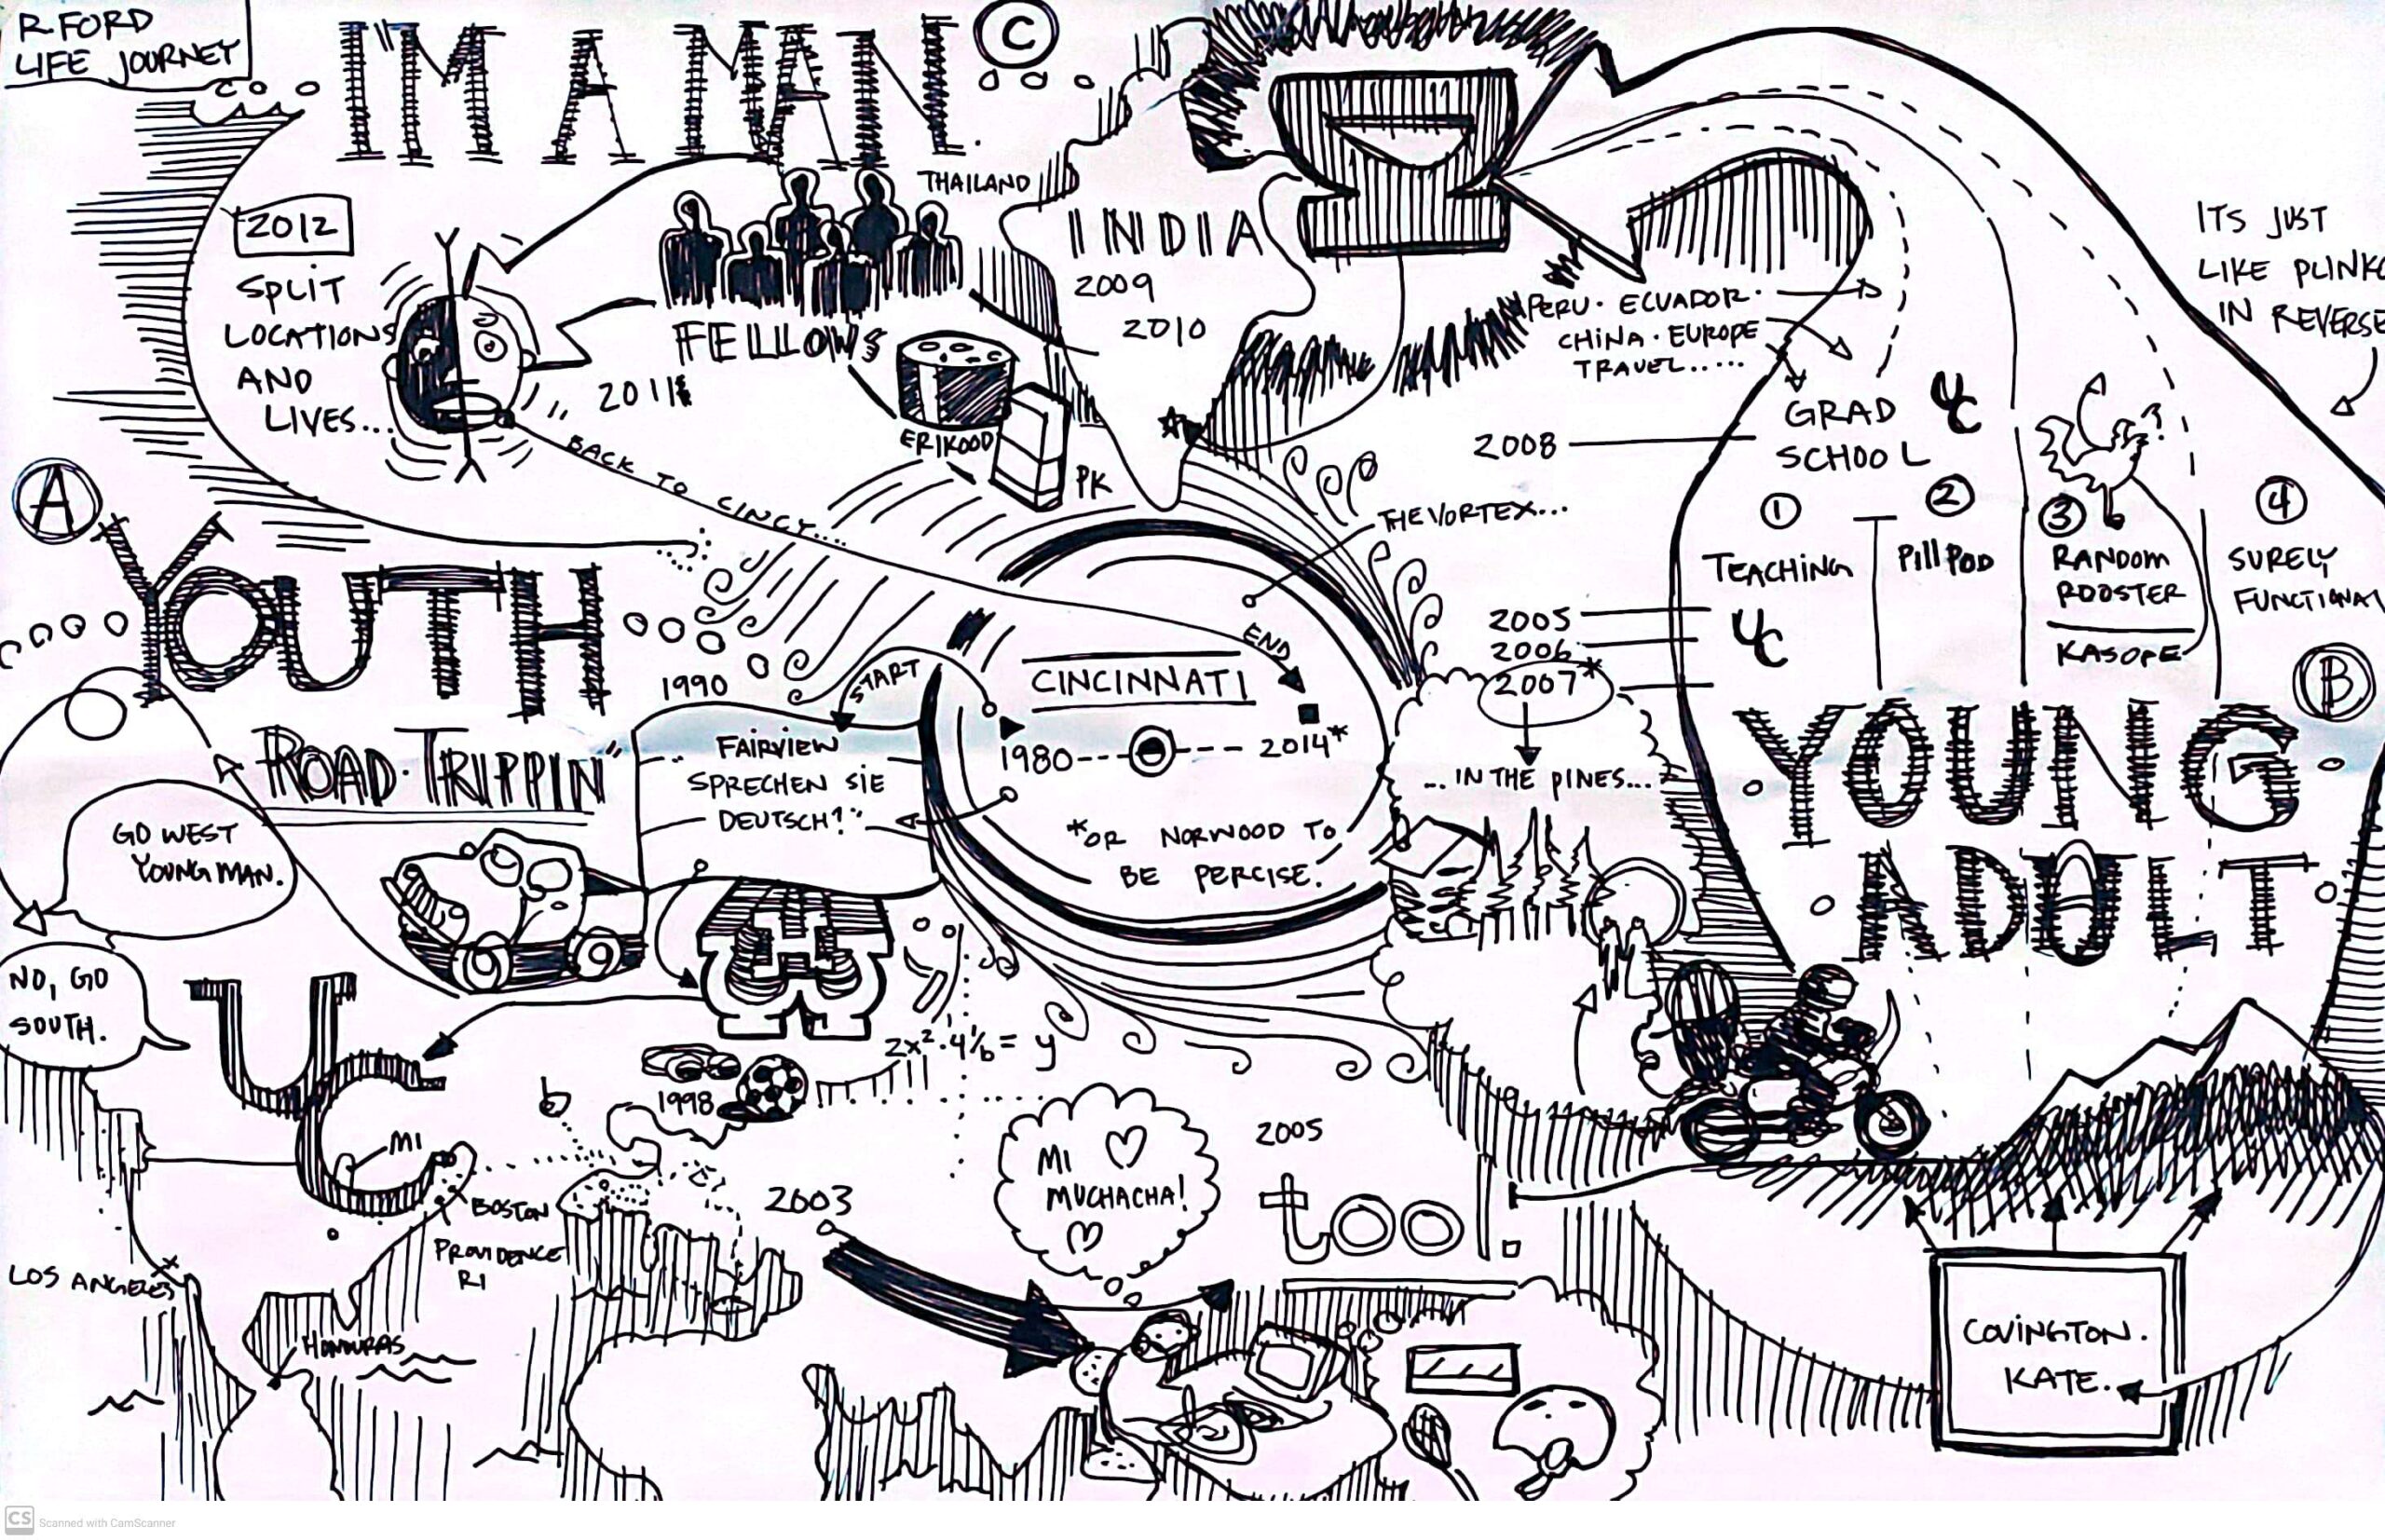 R. FORD
LIFE JOURNEY
I'M A MAN.
C
2012
SPLIT
LOCATIONS
AND
LIVES...
THAILAND
FELLOWS
2011
ERIKOOD
PK
INDIA
2009
2010
BACK TO CINCY....
THE VORTEX...
PERU · ECUADOR ·
CHINA · EUROPE
TRAVEL.....
ITS JUST
LIKE PLINKO
IN REVERSE
2008
GRAD
SCHOOL
UC
1
TEACHING
UC
2
Pill POD
3
RANDOM
ROOSTER
KASOPE
?
4
SURELY
FUNCTIONAL
2005
2006
2007*
... IN THE PINES...
B
YOUNG
ADULT
A
YOUTH
ROAD·TRIPPIN"
1990
START
FAIRVIEW
SPRECHEN SIE
DEUTSCH?"
CINCINNATI
END
1980--- --- 2014*
*OR NORWOOD TO
BE PERCISE.
GO WEST
YOUNG MAN.
NO, GO
SOUTH.
UC
MI
BOSTON
PROVIDENCE
RI
LOS ANGELES
HONDURAS
1998
2x²·4/b = y
2003
MI
MUCHACHA!
2005
tool.
COVINGTON.
KATE.
CS Scanned with CamScanner